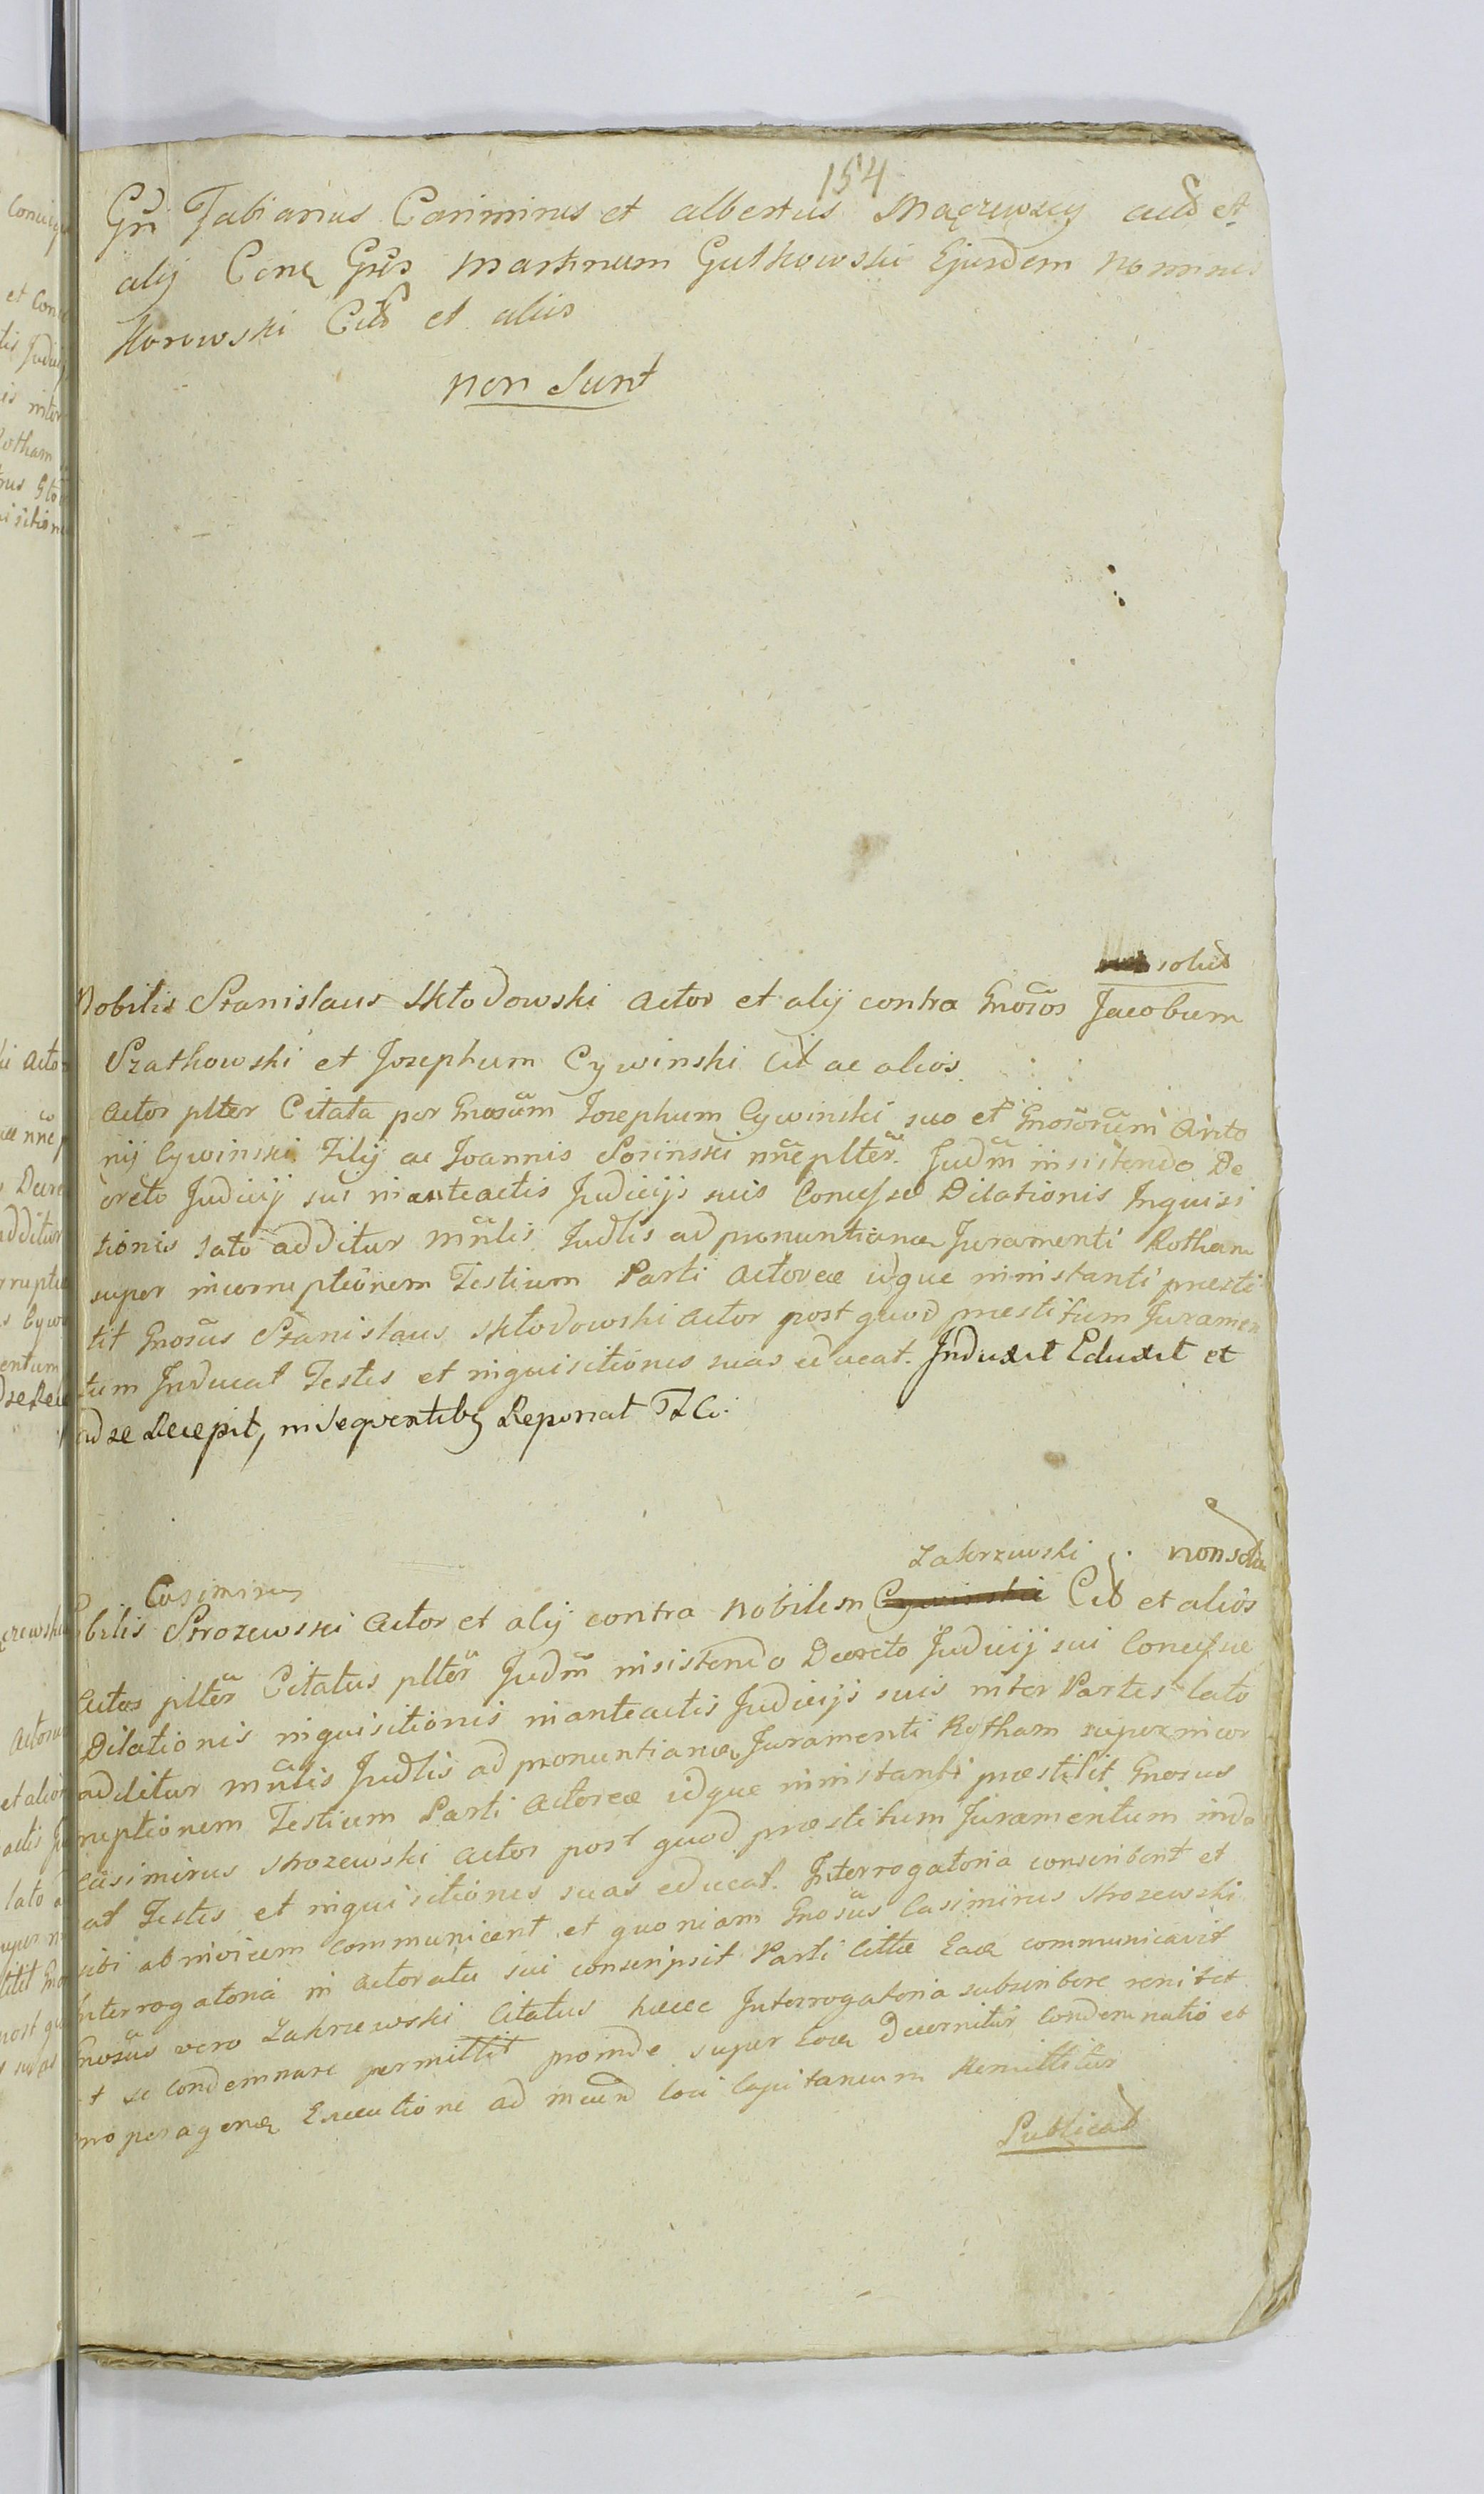 154
Gñi Fabianus Casimirus et albertus Mączewscy act et
alij Con Gños Martinum Gutkowski Ejusdem nominis
Korowski Citt et alios
non Sunt
solut
Nobilis Stanislaus Skłodowski Actor et alij contra Gnosos Jacobum
Szatkowski et Josephum Cywinski Cit ac alios
Actor plter Citata per Gnosum Josephum Cywinski suo et Gnosorum Anto
nij Cywinski Filij ac Joannis Sosinski nñe plter. Judm insistendo De
creto Judicij sui in anteactis Judicijs suis Concessæ Dilationis Inquisi
tionis lato additur mnlis Judlis ad pronuntian Juramenti Rotham
super incorruptionem Testium Parti Actoreæ idque in instanti præsti
tit Gnosus Stanislaus Skłodowski Actor post quod præstitum Juramen
tum Inducat Testes et inquisitiones suas educat. Induxit Eduxit et
ad se Recepit, in Sequentibq Reponat
Zakrzewski nonsolu
Casimirus
bilis Strozewski Actor et alij contra Nobilem Cywinski Cit et alios
Actor plter Citatus plter Judm insistendo Decreto Judicij sui Concessæ
Dilationis inquisitionis in anteactis Judicijs suis inter Partes lato
additur mnlis Judlis ad pronuntian Juramenti Rotham super incor
ruptionem Testium Parti Actoreæ idque in instanti præstitit Gnosus
Casimirus Strozewski Actor post quod præstitum Juramentum indu
at Testes et inquisitiones suas educat. Interrogatoria conscribent et
sibi ab invicem communicent et quoniam Gnosus Casimirus Strozewski
Interrogatoria in actoratu sui conscripsit Parti Cittæ Eaq communicavit
nosus vero Zakrzewski Citatus hæcce Interrogatoria subscribere renitet
t se condemnare permittit proinde super Eoq decernitur Condemnatio et
pro peragen Executione ad incund loci Capitaneum Remittitur
Publicat